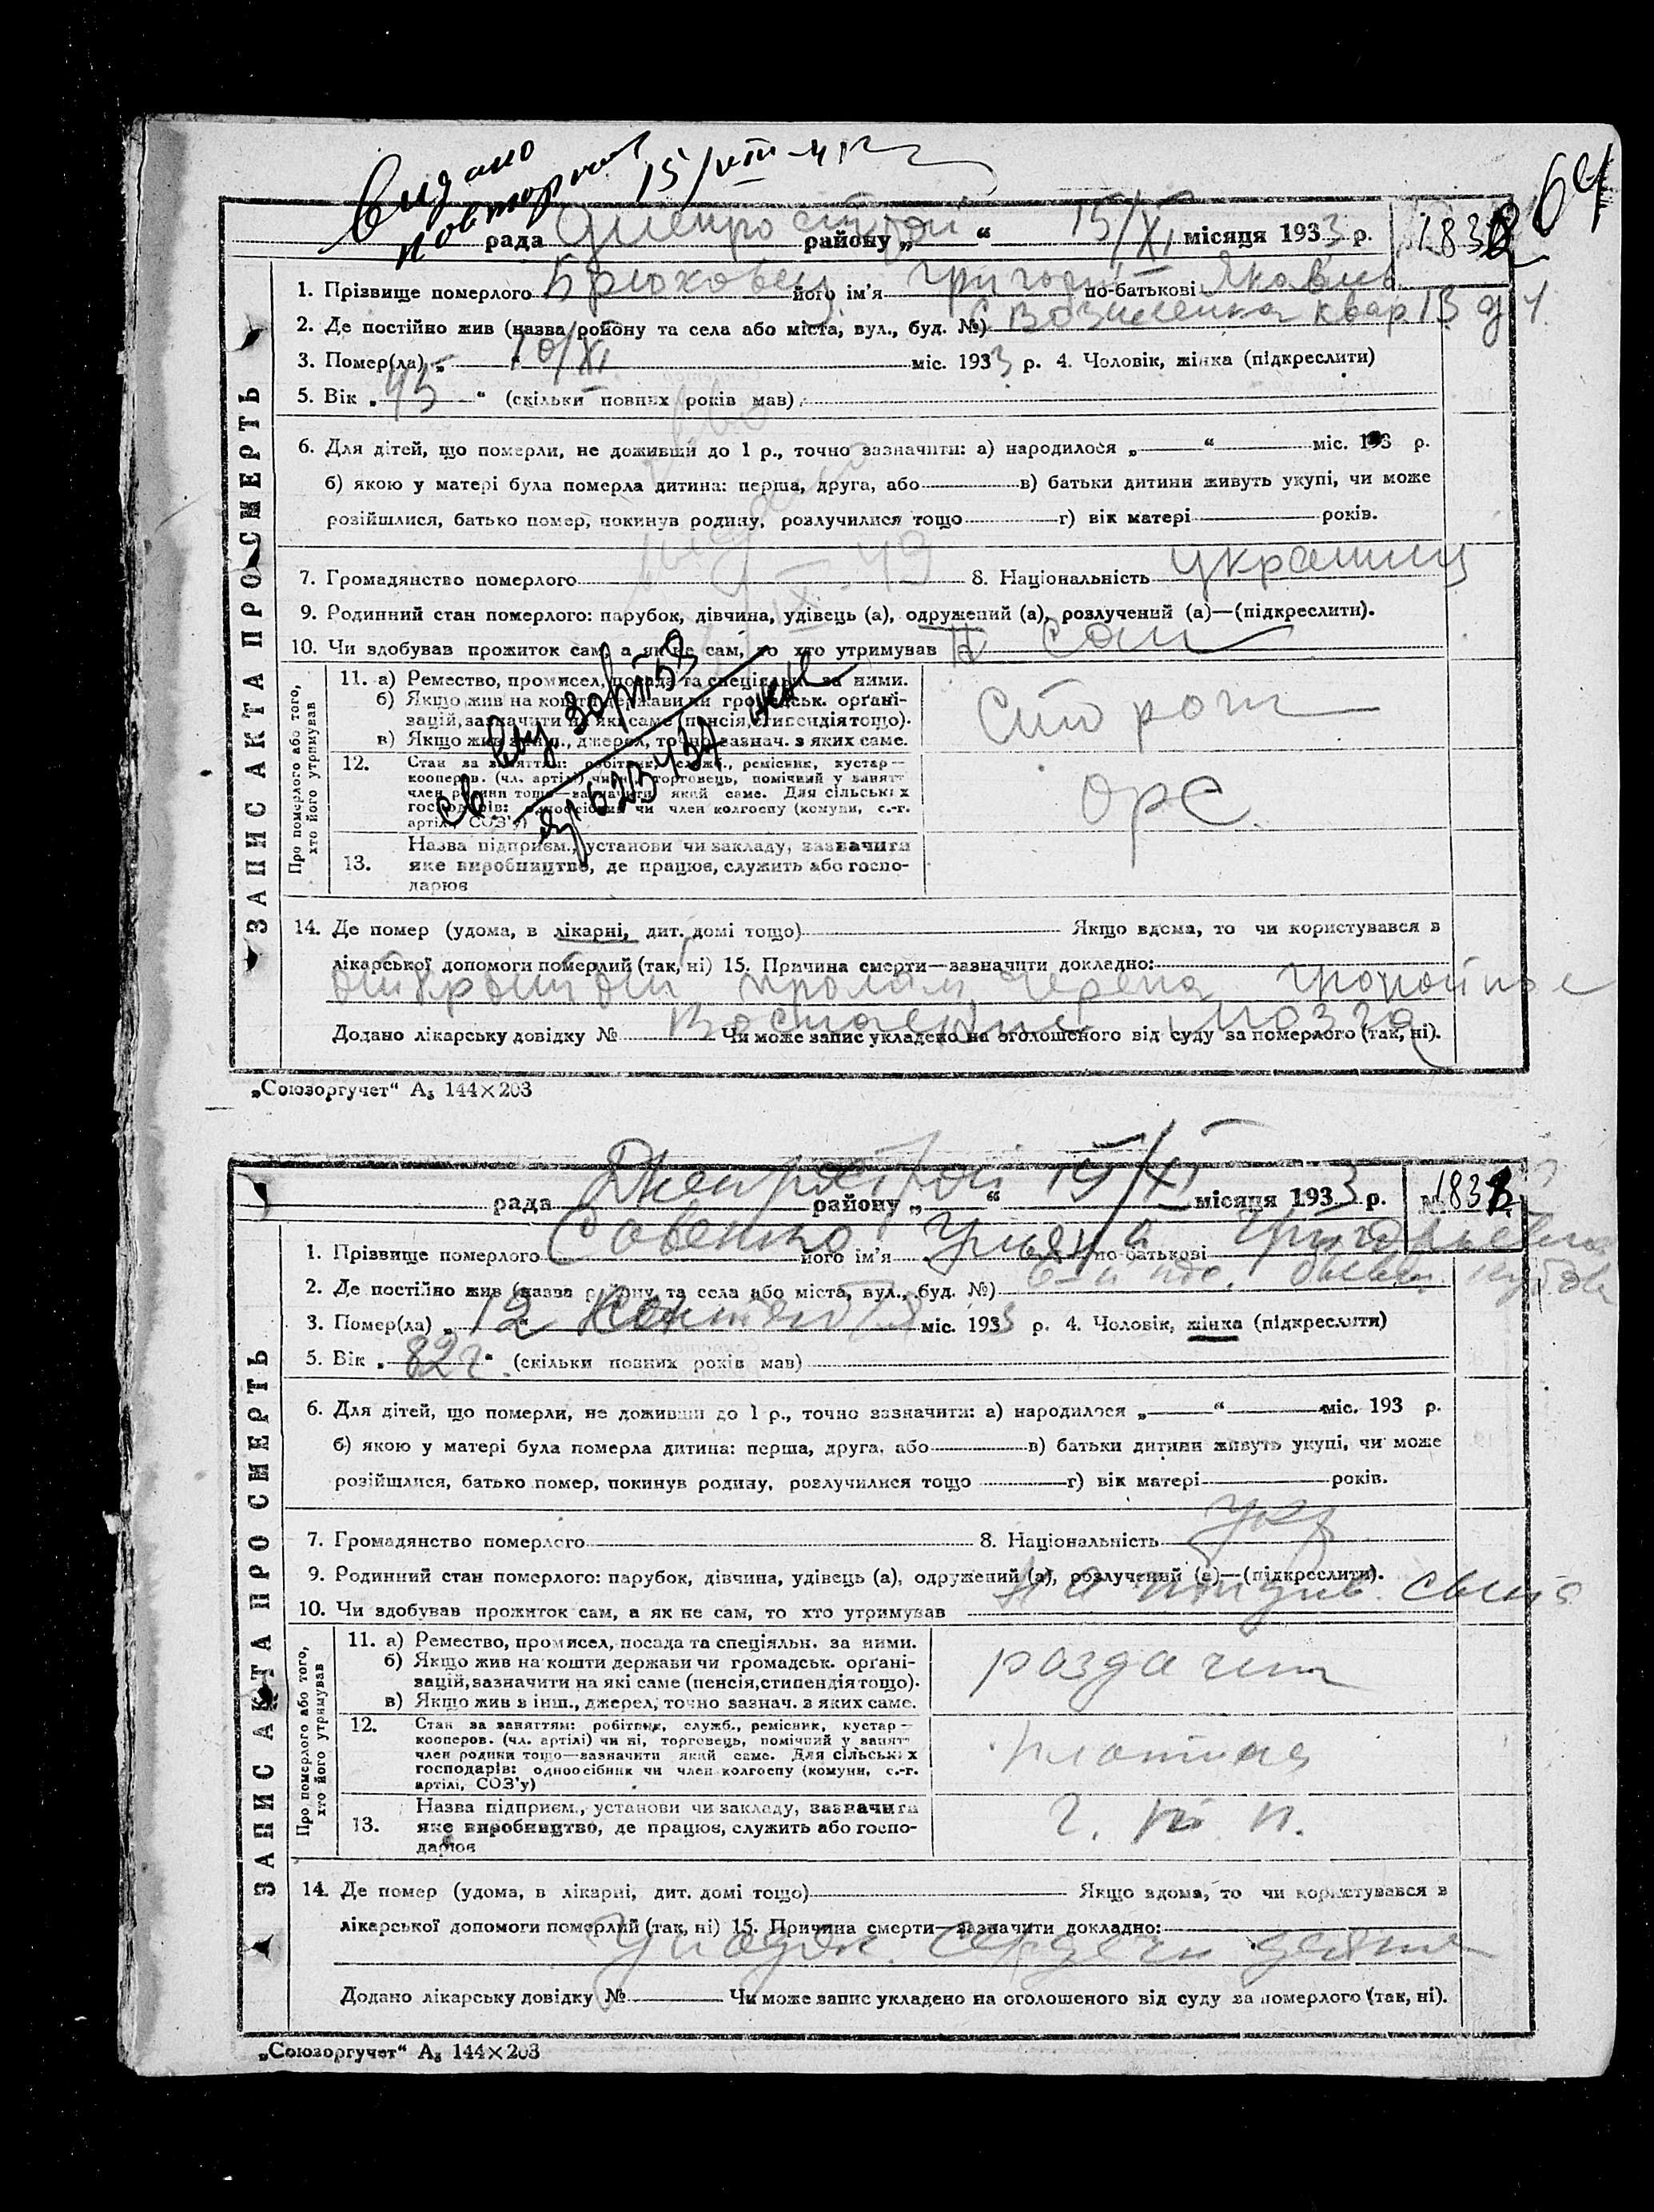 Видано
повторно 15/VIII-41 г
64
рада Днепрострой району „ “ 15/XI місяця 1933 р. 1832
1. Прізвище померлого Брюховец його ім'я Григорий по-батькові Яковлев
2. Де постійно жив (назва району та села або міста, вул., буд. №) С Вознесенка квар. 13 д 1
3. Помер(ла) „ 10/XI міс. 1933 р. 4. Чоловік, жінка (підкреслити)
5. Вік „ 45 “ (скільки повних років мав)
6. Для дітей, що померли, не доживши до 1 р., точно зазначити: а) народилося „ “ міс. 193 р.
б) якою у матері була померла дитина: перша, друга, або в) батьки дитини живуть укупі, чи може
розійшлися, батько помер, покинув родину, розлучилися тощо г) вік матері років.
7. Громадянство померлого 8. Національність украинец
9. Родинний стан померлого: парубок, дівчина, удівець (а), одружений (а), розлучений (а)—(підкреслити).
10. Чи здобував прожиток сам, а як не сам, то хто утримував сам
ЗАПИС АКТА ПРО СМЕРТЬ
Про померлого або того, хто його утримував
11. а) Ремество, промисел, посада та спеціяльн. за ними.
б) Якщо жив на кошти держави чи громадськ. орґані-
зацій, зазначити на які саме (пенсія, стипендія тощо).
в) Якщо жив з інш., джерел, точно зазнач. з яких саме.
сторож
12. Стан за заняттям: робітник, служб., ремісник, кустар—
кооперов. (чл. артілі) чи ні, торговець, помічний у занятт
член родини тощо—зазначити який саме. Для сільських
господарів: одноосібник чи член колгоспу (комуни, с.-г.
артілі, СОЗ'у)
орс.
13. Назва підприєм., установи чи закладу, зазначити
яке виробництво, де працює, служить або госпо-
дарює
14. Де помер (удома, в лікарні, дит. домі тощо) Якщо вдома, то чи користувався в
лікарської допомоги померлий (так, ні) 15. Причина смерти—зазначити докладно:
открытый пролом черепа гнойное
Воспаление мозга
Додано лікарську довідку № Чи може запис укладено на оголошеного від суду за померлого (так, ні).
„Союзоргучет“ А₅ 144×203
рада Днепрострой району „ “ 15/XI місяця 1933 р. № 1831
1. Прізвище померлого Савенко його ім'я Ульяна по-батькові Григорьевна
2. Де постійно жив (назва району та села або міста, вул., буд. №)
3. Помер(ла) „ 12 “ міс. 1933 р. 4. Чоловік, жінка (підкреслити)
5. Вік „ 82 г. “ (скільки повних років мав)
6. Для дітей, що померли, не доживши до 1 р., точно зазначити: а) народилося „ “ міс. 193 р.
б) якою у матері була померла дитина: перша, друга, або в) батьки дитини живуть укупі, чи може
розійшлися, батько помер, покинув родину, розлучилися тощо г) вік матері років.
7. Громадянство померлого 8. Національність укр
9. Родинний стан померлого: парубок, дівчина, удівець (а), одружений (а), розлучений (а)—(підкреслити).
10. Чи здобував прожиток сам, а як не сам, то хто утримував на иждив. сына
ЗАПИС АКТА ПРО СМЕРТЬ
Про померлого або того, хто його утримував
11. а) Ремество, промисел, посада та спеціяльн. за ними.
б) Якщо жив на кошти держави чи громадськ. орґані-
зацій, зазначити на які саме (пенсія, стипендія тощо).
в) Якщо жив в інш., джерел, точно зазнач. з яких саме.
раздатчик
12. Стан за заняттям: робітник, служб., ремісник, кустар—
кооперов. (чл. артілі) чи ні, торговець, помічний у занятт
член родини тощо—зазначити який саме. Для сільських
господарів: одноосібник чи член колгоспу (комуни, с.-г.
артілі, СОЗ'у)
плотина
13. Назва підприєм., установи чи закладу, зазначити
яке виробництво, де працює, служить або госпо-
дарює
14. Де помер (удома, в лікарні, дит. домі тощо) Якщо вдома, то чи користувався в
лікарської допомоги померлий (так, ні) 15. Причина смерти—зазначити докладно:
Упадок. сердечн деят
Додано лікарську довідку № Чи може запис укладено на оголошеного від суду за померлого (так, ні).
„Союзоргучет“ А₅ 144×203